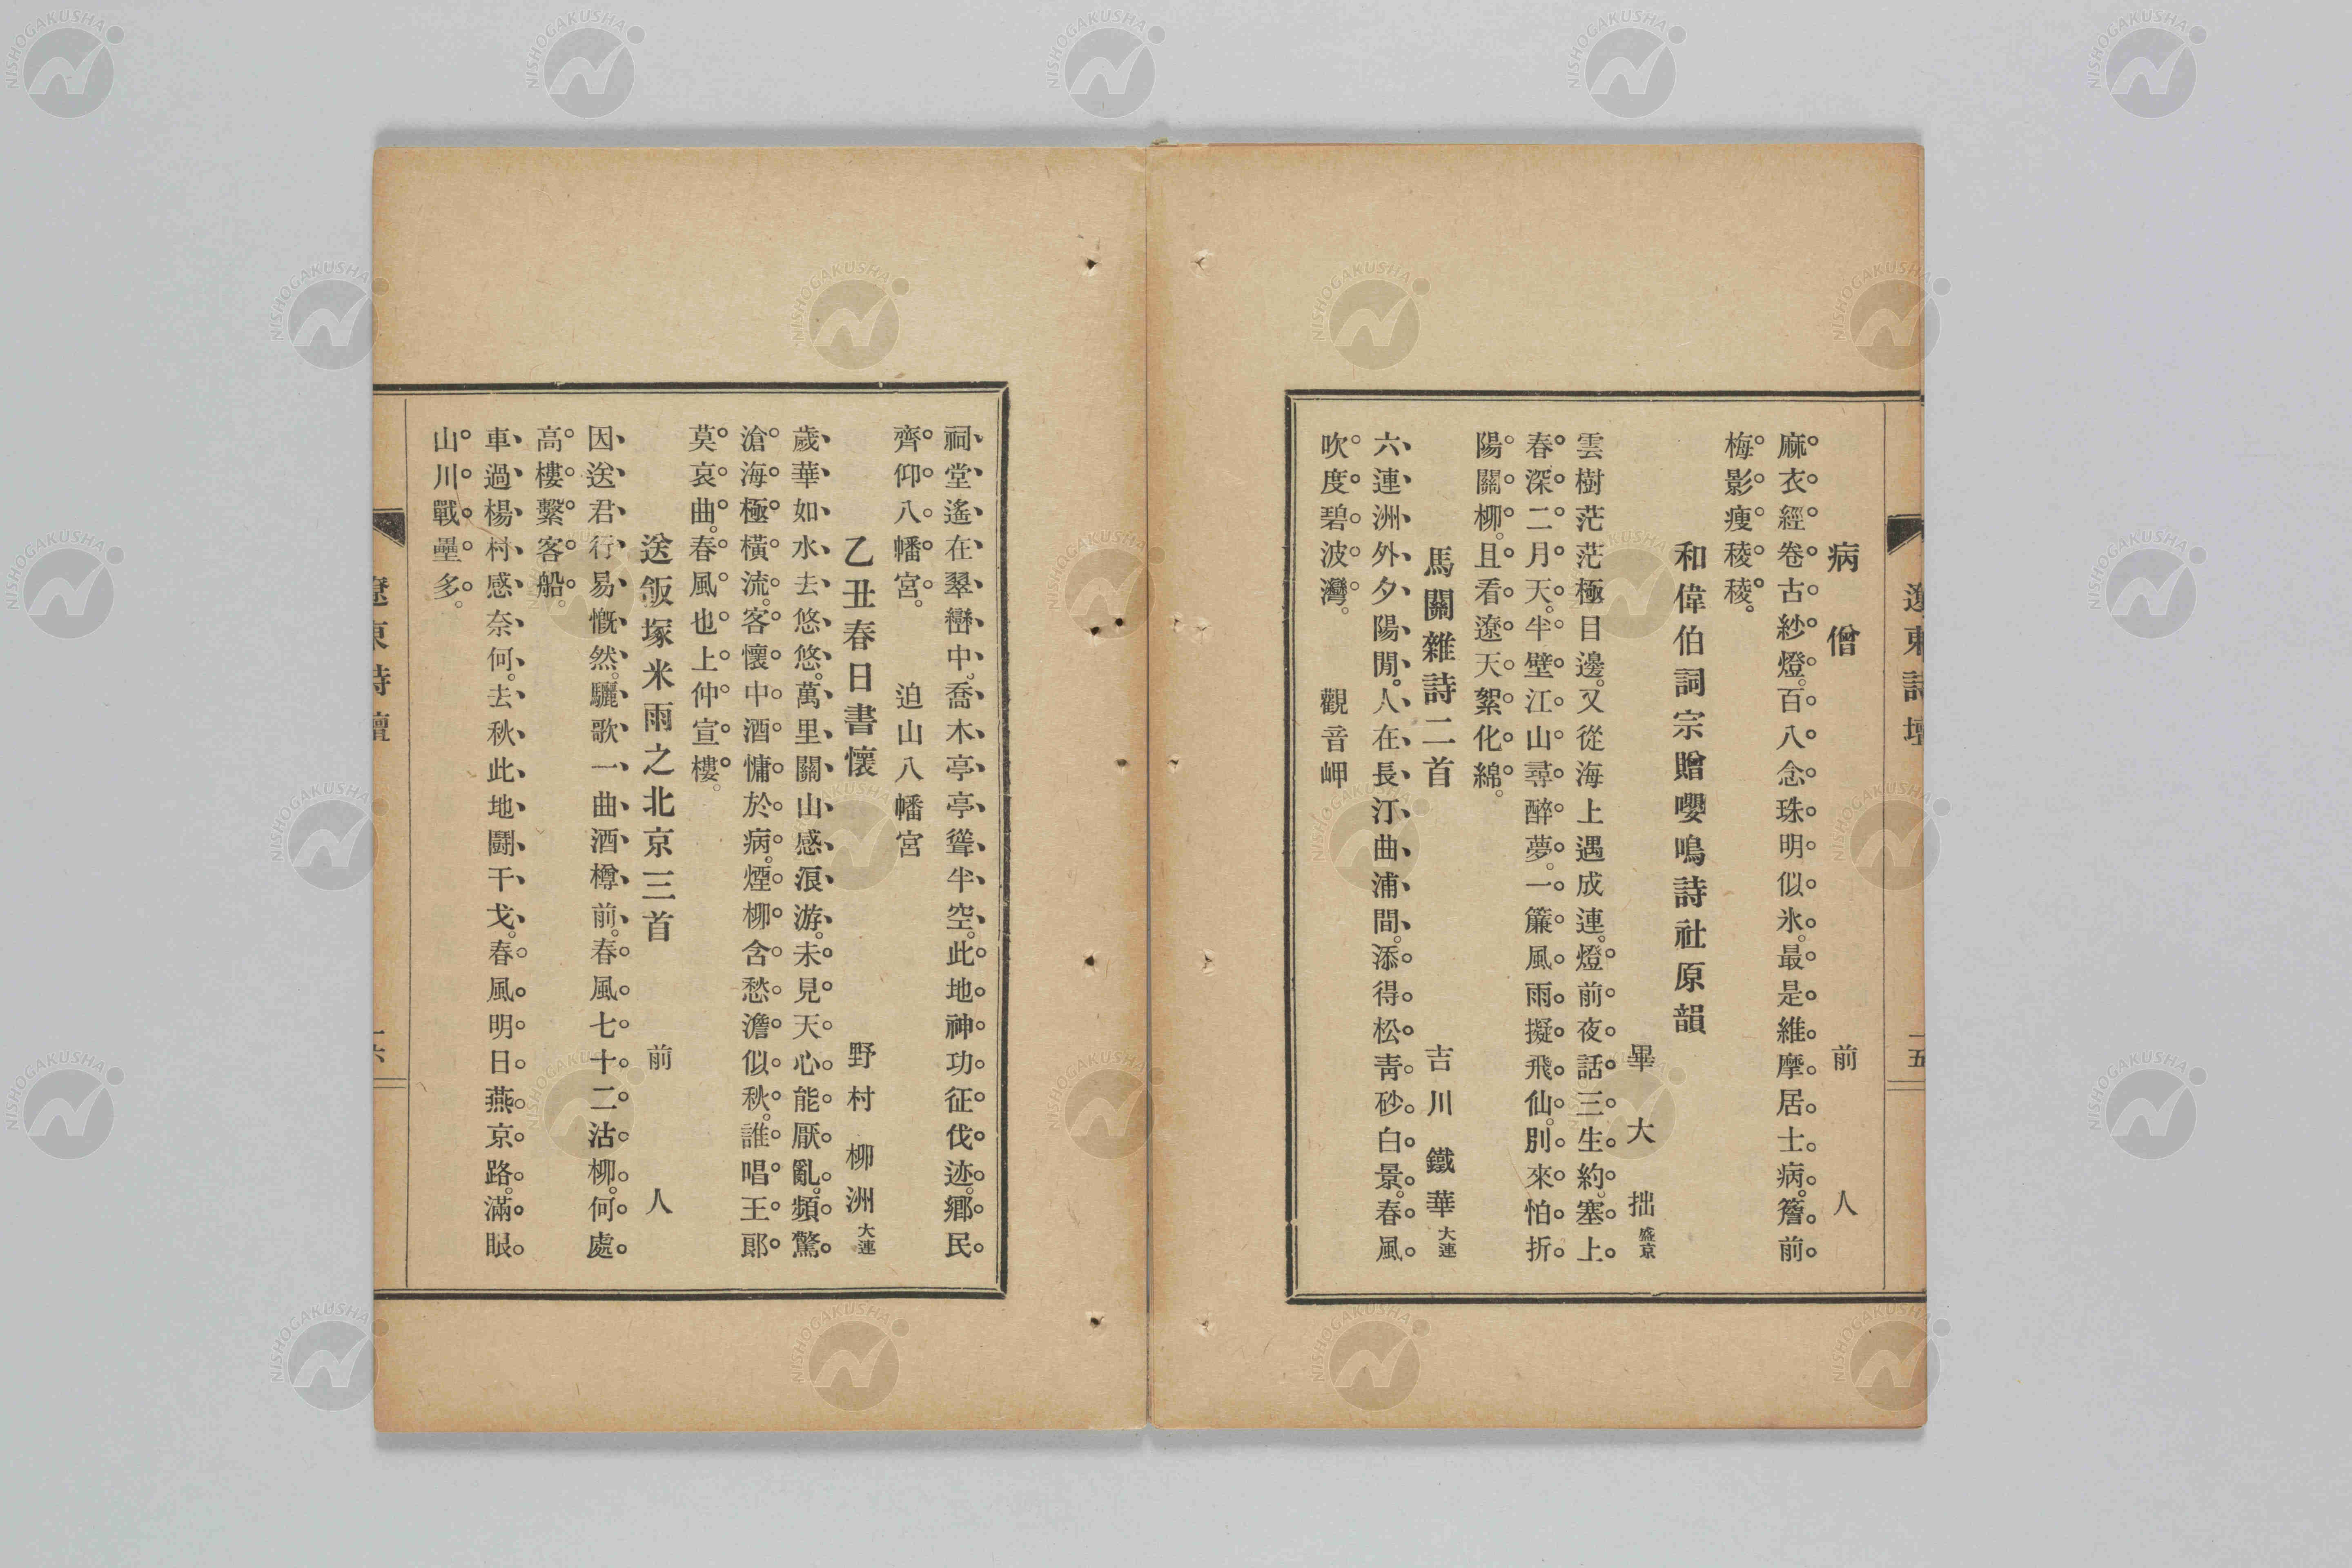 遼東詩壇 一五
病僧 前人
麻衣經卷古紗燈。百八念珠明似氷。最是維摩居士病。簷前
梅影瘦稜稜。
和偉伯詞宗贈嚶鳴詩社原韻
畢大拙 盛京
雲樹茫茫極目邊。又從海上遇成連。燈前夜話三生約。塞上
春深二月天。半壁江山尋醉夢。一簾風雨擬飛仙。別來怕折
陽關柳。且看遼天絮化綿。
馬關雜詩二首 吉川鐵華 大連
六連洲外夕陽閒。人在長汀曲浦間。添得松靑砂白景。春風
吹度碧波灣。 觀音岬
祠堂遙在翠巒中。喬木亭亭聳半空。此地神功征伐迹。鄉民
齊仰八幡宮。 迫山八幡宮
乙丑春日書懷 野村柳洲 大連
歲華如水去悠悠。萬里關山感浪游。未見天心能厭亂。頻驚
滄海極橫流。客懷中酒慵於病。煙柳含愁澹似秋。誰唱王郞
莫哀曲。春風也上仲宣樓。
送飯塚米雨之北京三首 前人
因送君行易慨然。驪歌一曲酒樽前。春風七十二沽柳。何處
高樓繫客船。
車過楊村感奈何。去秋此地鬪干戈。春風明日燕京路。滿眼
山川戰壘多。
遼東詩壇 一六
NISHOGAKUSHA